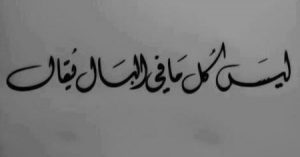 ليسَ كُل مَا في البَال يُقال